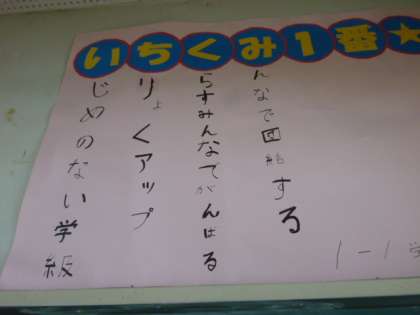 いちくみ1番★
じめのない学級
りょくアップ
らすみんなでがんばる
んなで団結する
1-1学